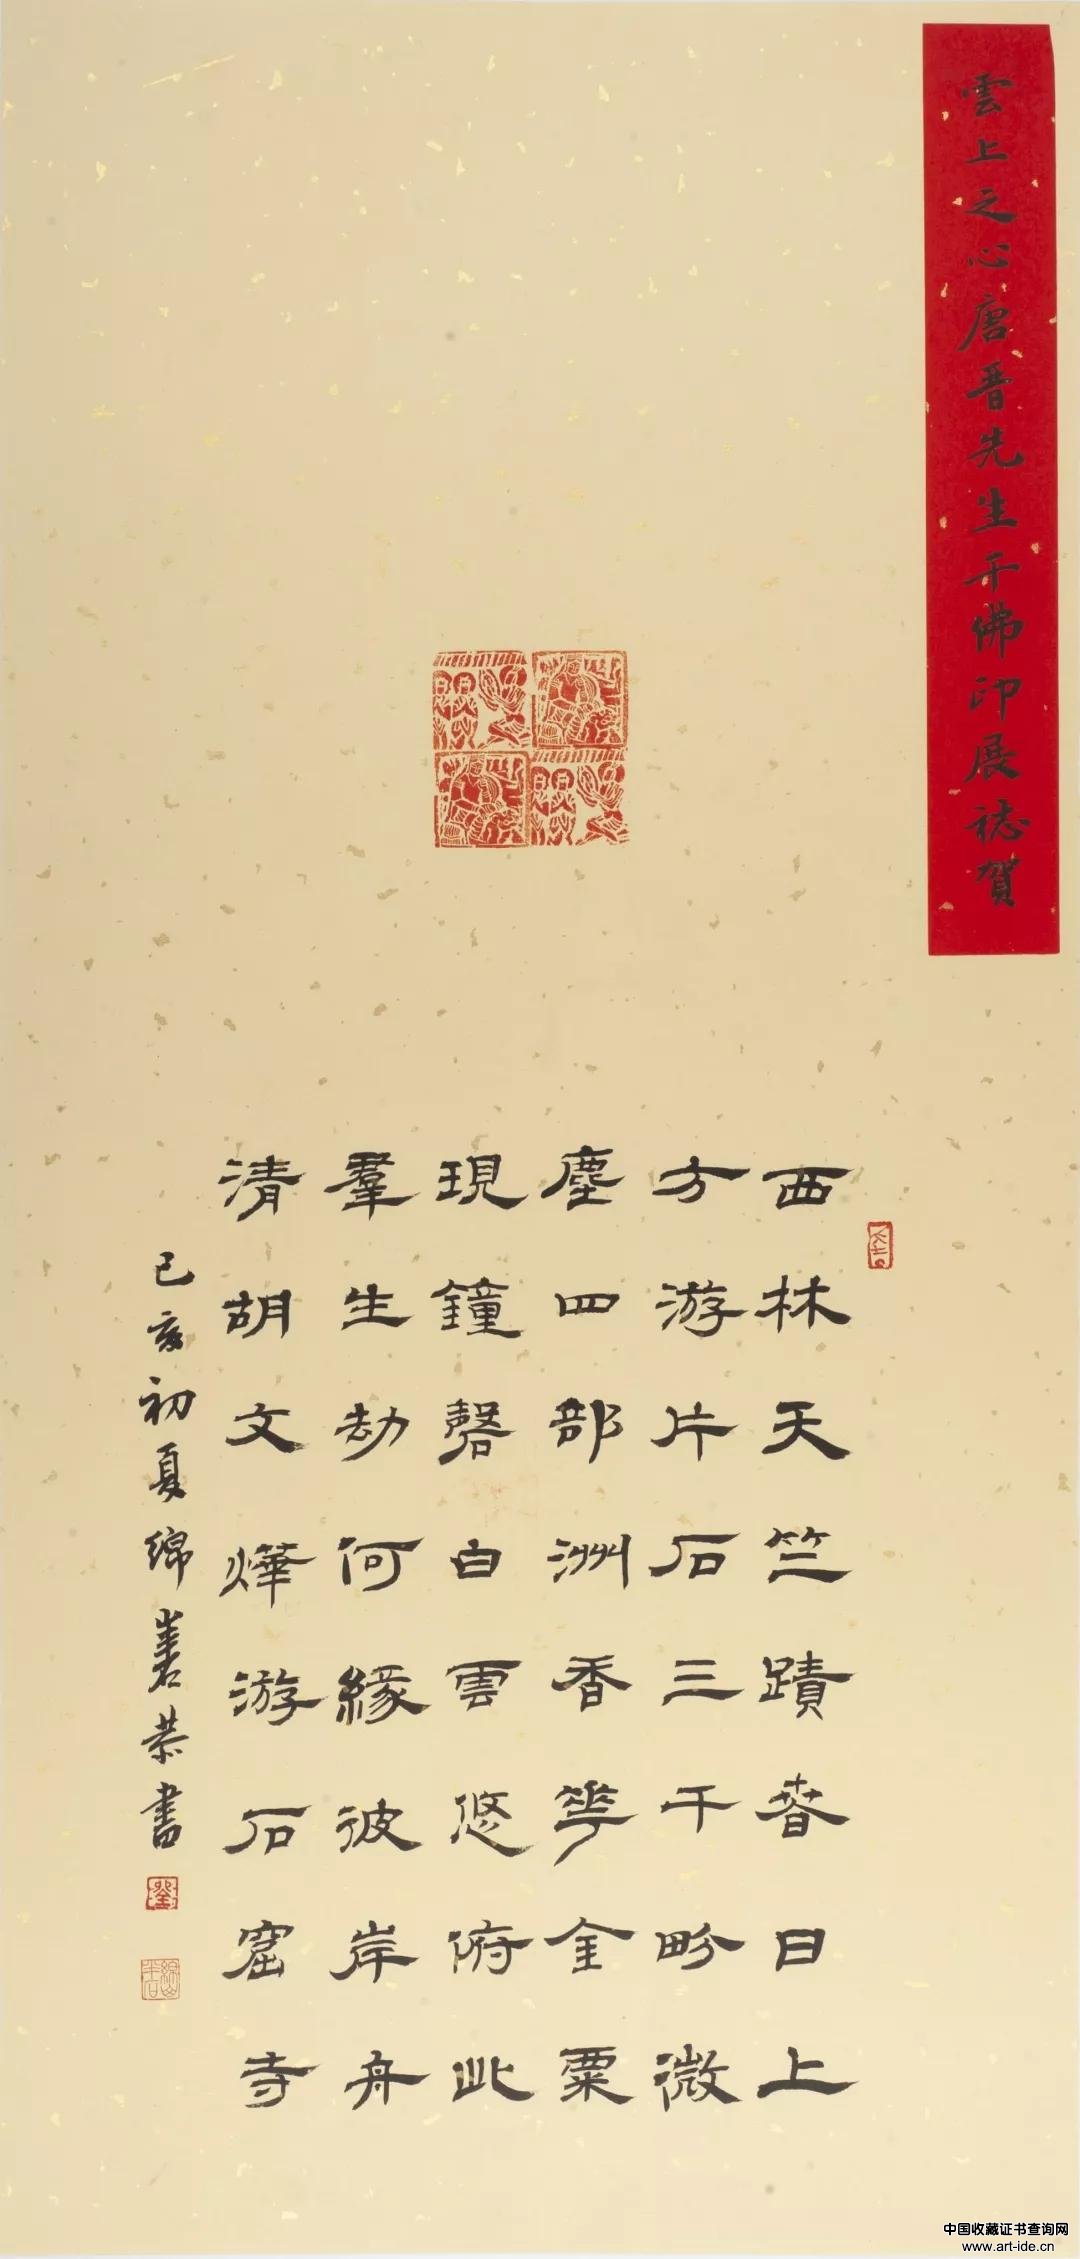 雲上之心唐晋先生千佛印展誌賀
西林天竺蹟春日上
方游片石三千畛微
塵四部洲香花金粟
現鐘磬白雲悠俯此
羣生劫何緣彼岸舟
清胡文燁游石窟寺
己亥初夏綿
恭書
中国收藏证书查询网
www.art-ide.cn